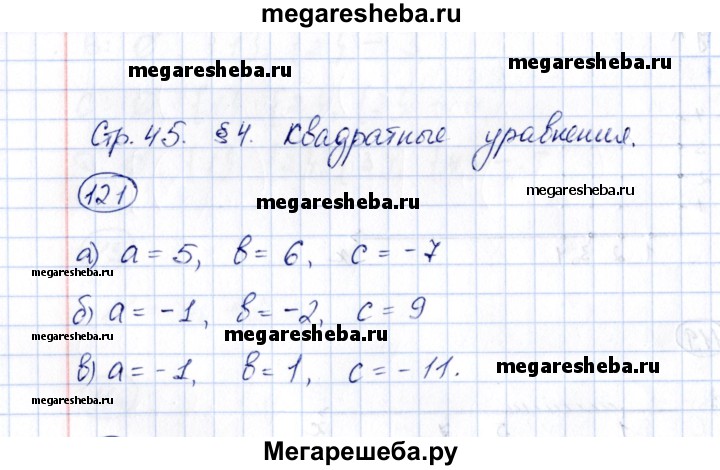 megaresheba.ru
megaresheba.ru
Стр. 45. §4. Квадратные уравнения.
121
megaresheba.ru
megaresheba.ru
а) a = 5, b = 6, c = -7
megaresheba.ru
б) a = -1, b = -2, c = 9
megaresheba.ru
megaresheba.ru
в) a = -1, b = 1, c = -11.
megaresheba.ru
megaresheba.ru
Мегарешеба.ру